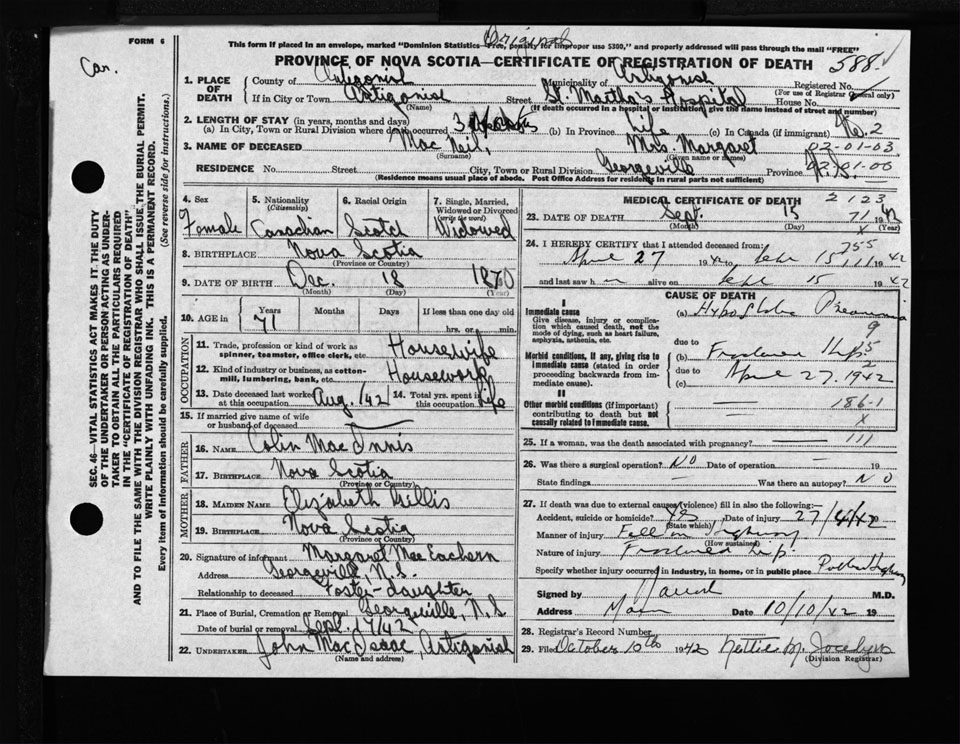 Original
FORM 6
This form if placed in an envelope, marked "Dominion Statistics—Free, penalty for improper use $300," and properly addressed will pass through the mail "FREE"
Can.
PROVINCE OF NOVA SCOTIA—CERTIFICATE OF REGISTRATION OF DEATH
588
1. PLACE OF DEATH
County of Antigonish Municipality of Antigonish Registered No.
(For use of Registrar General only)
If in City or Town Antigonish Street St. Martha's Hospital House No.
(Name) (If death occurred in a hospital or institution, give the name instead of street and number)
2. LENGTH OF STAY (in years, months and days)
(a) In City, Town or Rural Division where death occurred 3 (b) In Province Life (c) In Canada (if immigrant)
No. 2
3. NAME OF DECEASED Mac Neil, Mrs. Margaret 02-01-03
(Surname) (Given name or names)
02-01-00
RESIDENCE No. Street City, Town or Rural Division Georgeville Province N.S.
(Residence means usual place of abode. Post Office Address for residents in rural parts not sufficient)
4. Sex Female
5. Nationality (Citizenship) Canadian
6. Racial Origin Scotch
7. Single, Married, Widowed or Divorced (write the word) Widowed
8. BIRTHPLACE Nova Scotia
(Province or Country)
9. DATE OF BIRTH Dec. 18 1870
(Month) (Day) (Year)
10. AGE in Years Months Days If less than one day old
71 hrs. or min.
OCCUPATION
11. Trade, profession or kind of work as spinner, teamster, office clerk, etc. Housewife
12. Kind of industry or business, as cotton-mill, lumbering, bank, etc. Housework
13. Date deceased last worked at this occupation Aug./42
14. Total yrs. spent in this occupation Life
15. If married give name of wife or husband of deceased
FATHER
16. NAME Colin Mac Innis
17. BIRTHPLACE Nova Scotia
(Province or Country)
MOTHER
18. MAIDEN NAME Elizabeth Gillis
19. BIRTHPLACE Nova Scotia
(Province or Country)
20. Signature of informant Margaret Mac Eachern
Address Georgeville, N.S.
Relationship to deceased Foster-daughter
21. Place of Burial, Cremation or Removal Georgeville, N.S
Date of burial or removal Sept. 17/42
22. UNDERTAKER John MacIsaac, Antigonish
(Name and address)
MEDICAL CERTIFICATE OF DEATH
2 123
23. DATE OF DEATH Sept. 15 1942
71
(Month) (Day) (Year)
X
24. I HEREBY CERTIFY that I attended deceased from:
755
April 27 1942 to Sept 15 1942
111
and last saw h alive on Sept 15 1942
CAUSE OF DEATH
I
Immediate cause
Give disease, injury or complication which caused death, not the mode of dying, such as heart failure, asphyxia, asthenia, etc.
(a) Hypostatic Pneumonia
9
due to
Morbid conditions, if any, giving rise to immediate cause (stated in order proceeding backwards from immediate cause).
(b) Fractured Hip
5
2
due to
(c) April 27, 1942
II
Other morbid conditions (if important) contributing to death but not causally related to immediate cause.
186-1
X
25. If a woman, was the death associated with pregnancy? — 111
26. Was there a surgical operation? NO Date of operation — 19
State findings — Was there an autopsy? NO
27. If death was due to external causes (violence) fill in also the following:
Accident, suicide or homicide? Yes Date of injury 27/4/42 19
(State which)
Manner of injury Fall on highway
(How sustained)
Nature of injury Fractured hip.
Specify whether injury occurred in industry, in home, or in public place Public Highway
Signed by M.D.
Address Date 10/10/42 19
28. Registrar's Record Number
29. Filed October 10th 1942 Nettie M. Jocelyn
(Division Registrar)
SEC. 46—VITAL STATISTICS ACT MAKES IT THE DUTY
OF THE UNDERTAKER OR PERSON ACTING AS UNDER-
TAKER TO OBTAIN ALL THE PARTICULARS REQUIRED
IN THE "CERTIFICATE OF REGISTRATION OF DEATH"
AND TO FILE THE SAME WITH THE DIVISION REGISTRAR WHO SHALL ISSUE THE BURIAL PERMIT.
WRITE PLAINLY WITH UNFADING INK. THIS IS A PERMANENT RECORD.
Every item of information should be carefully supplied. (See reverse side for instructions.)